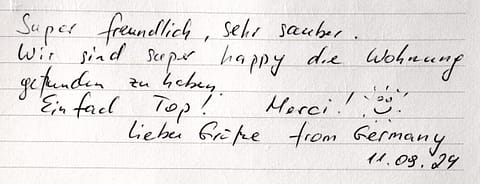 Super freundlich, sehr sauber.
Wir sind super happy die Wohnung
gefunden zu haben.
Einfach Top! Merci!
Lieber Grüße from Germany
11.09.24